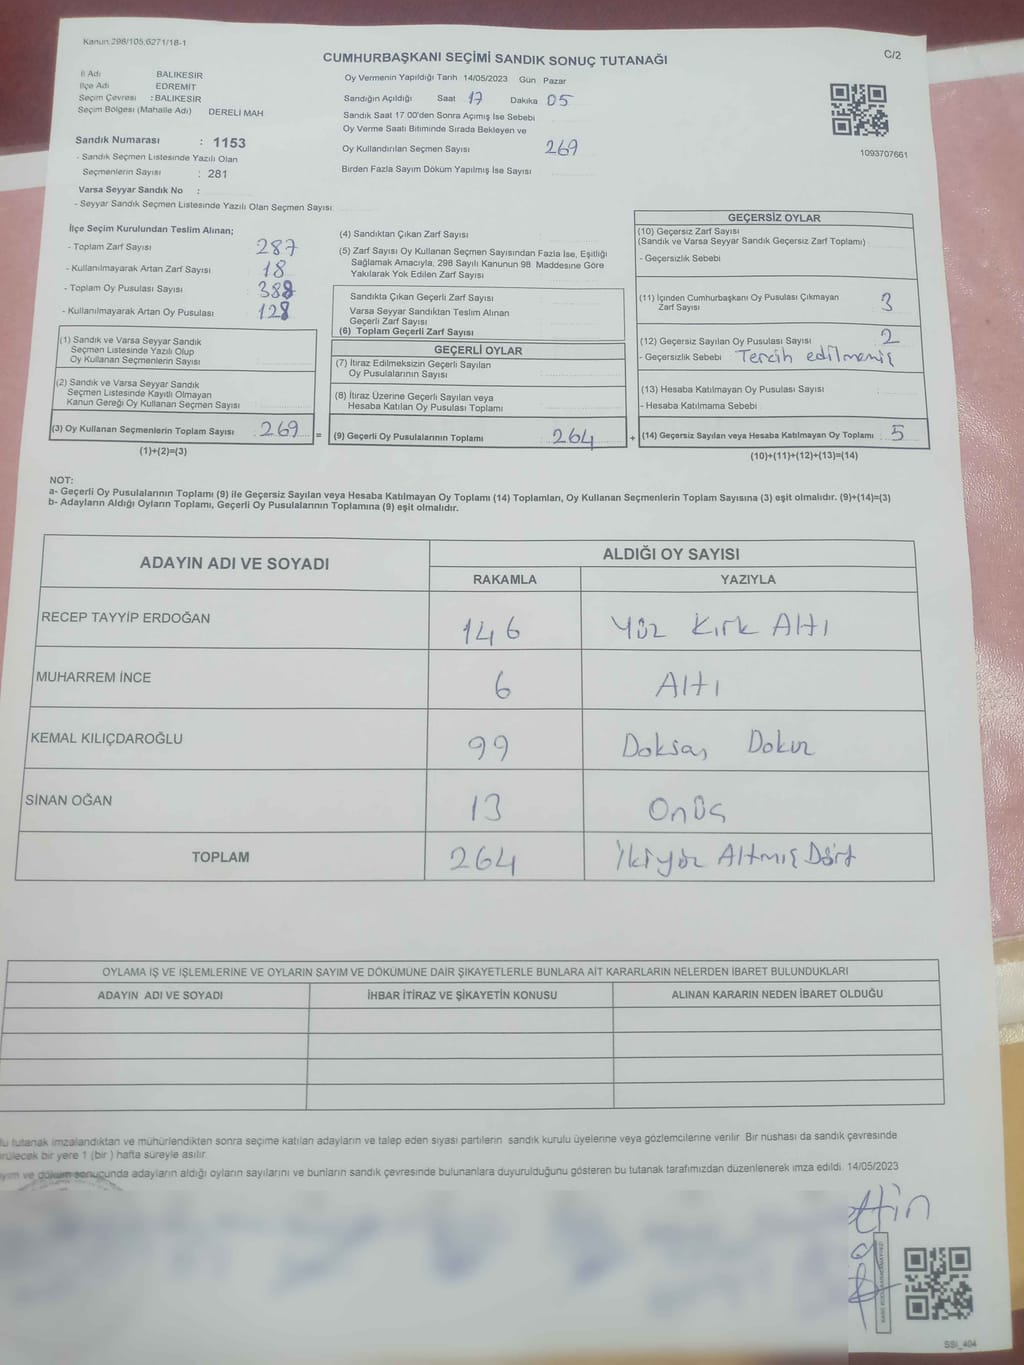 Kanun.298/105,6271/18-1
CUMHURBAŞKANI SEÇİMİ SANDIK SONUÇ TUTANAĞI
C/2
İl Adı BALIKESİR
İlçe Adı EDREMİT
Seçim Çevresi : BALIKESİR
Seçim Bölgesi (Mahalle Adı) DERELİ MAH
Sandık Numarası : 1153
- Sandık Seçmen Listesinde Yazılı Olan
Seçmenlerin Sayısı : 281
Varsa Seyyar Sandık No :
- Seyyar Sandık Seçmen Listesinde Yazılı Olan Seçmen Sayısı
Oy Vermenin Yapıldığı Tarih 14/05/2023 Gün Pazar
Sandığın Açıldığı Saat 17 Dakika 05
Sandık Saat 17.00'den Sonra Açımış İse Sebebi
Oy Verme Saati Bitiminde Sırada Bekleyen ve
Oy Kullandırılan Seçmen Sayısı 269
Birden Fazla Sayım Döküm Yapılmış İse Sayısı
1093707661
İlçe Seçim Kurulundan Teslim Alınan;
- Toplam Zarf Sayısı 287
- Kullanılmayarak Artan Zarf Sayısı 18
- Toplam Oy Pusulası Sayısı 388
- Kullanılmayarak Artan Oy Pusulası 128
(1) Sandık ve Varsa Seyyar Sandık
Seçmen Listesinde Yazılı Olup
Oy Kullanan Seçmenlerin Sayısı
(2) Sandık ve Varsa Seyyar Sandık
Seçmen Listesinde Kayıtlı Olmayan
Kanun Gereği Oy Kullanan Seçmen Sayısı
(3) Oy Kullanan Seçmenlerin Toplam Sayısı 269 =
(1)+(2)=(3)
(4) Sandıktan Çıkan Zarf Sayısı
(5) Zarf Sayısı Oy Kullanan Seçmen Sayısından Fazla İse, Eşitliği
Sağlamak Amacıyla, 298 Sayılı Kanunun 98. Maddesine Göre
Yakılarak Yok Edilen Zarf Sayısı
Sandıkta Çıkan Geçerli Zarf Sayısı
Varsa Seyyar Sandıktan Teslim Alınan
Geçerli Zarf Sayısı
(6) Toplam Geçerli Zarf Sayısı
GEÇERLİ OYLAR
(7) İtiraz Edilmeksizin Geçerli Sayılan
Oy Pusulalarının Sayısı
(8) İtiraz Üzerine Geçerli Sayılan veya
Hesaba Katılan Oy Pusulası Toplamı
(9) Geçerli Oy Pusulalarının Toplamı 264 +
GEÇERSİZ OYLAR
(10) Geçersiz Zarf Sayısı
(Sandık ve Varsa Seyyar Sandık Geçersiz Zarf Toplamı)
- Geçersizlik Sebebi
(11) İçinden Cumhurbaşkanı Oy Pusulası Çıkmayan
Zarf Sayısı 3
(12) Geçersiz Sayılan Oy Pusulası Sayısı 2
- Geçersizlik Sebebi Tercih edilmemiş
(13) Hesaba Katılmayan Oy Pusulası Sayısı :
- Hesaba Katılmama Sebebi
(14) Geçersiz Sayılan veya Hesaba Katılmayan Oy Toplamı 5
(10)+(11)+(12)+(13)=(14)
NOT:
a- Geçerli Oy Pusulalarının Toplamı (9) ile Geçersiz Sayılan veya Hesaba Katılmayan Oy Toplamı (14) Toplamları, Oy Kullanan Seçmenlerin Toplam Sayısına (3) eşit olmalıdır. (9)+(14)=(3)
b- Adayların Aldığı Oyların Toplamı, Geçerli Oy Pusulalarının Toplamına (9) eşit olmalıdır.
ADAYIN ADI VE SOYADI
ALDIĞI OY SAYISI
RAKAMLA YAZIYLA
RECEP TAYYİP ERDOĞAN 146 Yüz Kırk Altı
MUHARREM İNCE 6 Altı
KEMAL KILIÇDAROĞLU 99 Doksan Dokuz
SİNAN OĞAN 13 Onüç
TOPLAM 264 İkiyüz Altmış Dört
OYLAMA İŞ VE İŞLEMLERİNE VE OYLARIN SAYIM VE DÖKÜMÜNE DAİR ŞİKAYETLERLE BUNLARA AİT KARARLARIN NELERDEN İBARET BULUNDUKLARI
ADAYIN ADI VE SOYADI İHBAR İTİRAZ VE ŞİKAYETİN KONUSU ALINAN KARARIN NEDEN İBARET OLDUĞU
tutanak imzalandıktan ve mühürlendikten sonra seçime katılan adayların ve talep eden siyasi partilerin sandık kurulu üyelerine veya gözlemcilerine verilir. Bir nüshası da sandık çevresinde
bir yere 1 (bir ) hafta süreyle asılır.
ve döküm sonucunda adayların aldığı oyların sayılarını ve bunların sandık çevresinde bulunanlara duyurulduğunu gösteren bu tutanak tarafımızdan düzenlenerek imza edildi. 14/05/2023